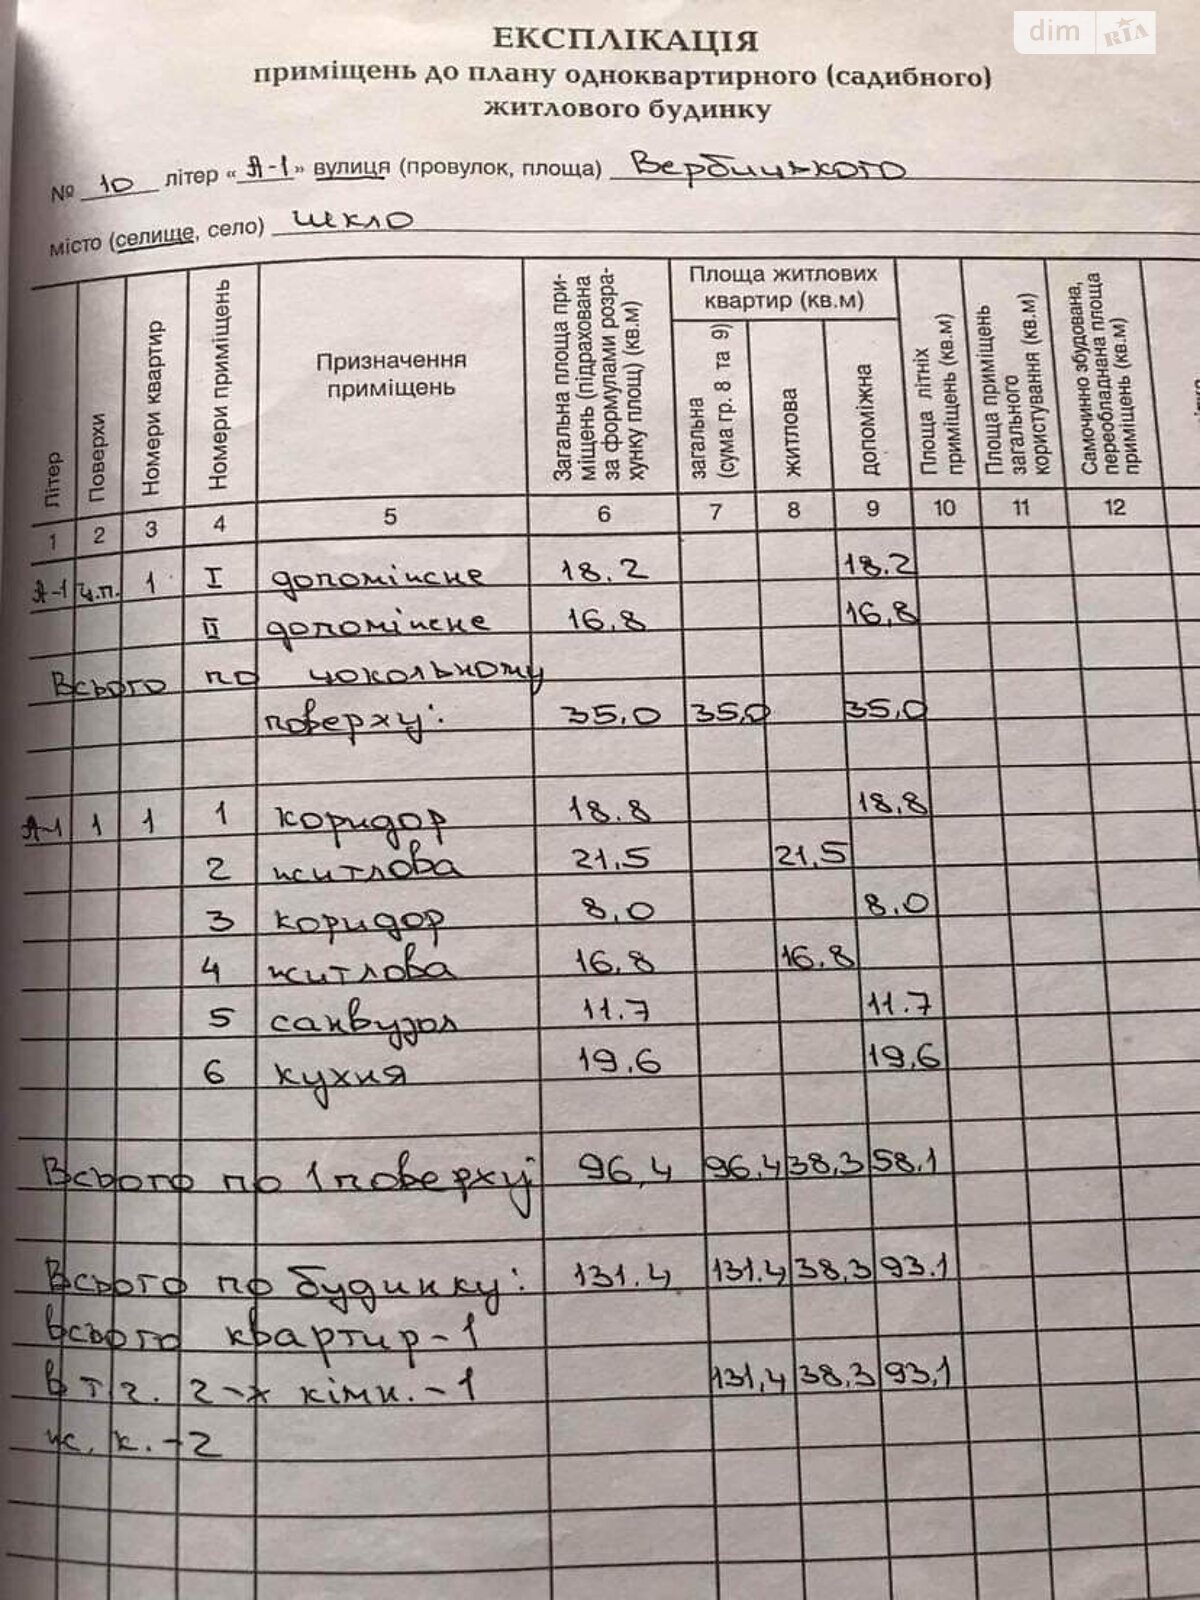 dim RIA
ЕКСПЛІКАЦІЯ
приміщень до плану одноквартирного (садибного)
житлового будинку
№ 10 літер «А-1» вулиця (провулок, площа) Вербицького
місто (селище, село) Шкло
Літер | Поверхи | Номери квартир | Номери приміщень | Призначення приміщень | Загальна площа приміщень (підрахована за формулами розрахунку площ) (кв.м) | Площа житлових квартир (кв.м) | загальна (сума гр. 8 та 9) | житлова | допоміжна | Площа літніх приміщень (кв.м) | Площа приміщень загального користування (кв.м) | Самочинно збудована, переобладнана площа приміщень (кв.м)
1 2 3 4 5 6 7 8 9 10 11 12
А-1 ц.п. 1 I допоміжне 18.2 18.2
II допоміжне 16,8 16,8
Всього по цокольному
поверху: 35,0 35,0 35,0
А-1 1 1 1 коридор 18.8 18,8
2 житлова 21,5 21,5
3 коридор 8,0 8.0
4 житлова 16,8 16.8
5 санвузол 11.7 11.7
6 кухня 19.6 19,6
Всього по 1 поверху: 96,4 96,4 38,3 58,1
Всього по будинку: 131.4 131.4 38,3 93.1
всього квартир-1
в т.ч. 2-х кімн.-1 131,4 38.3 93,1
ж. к.-2